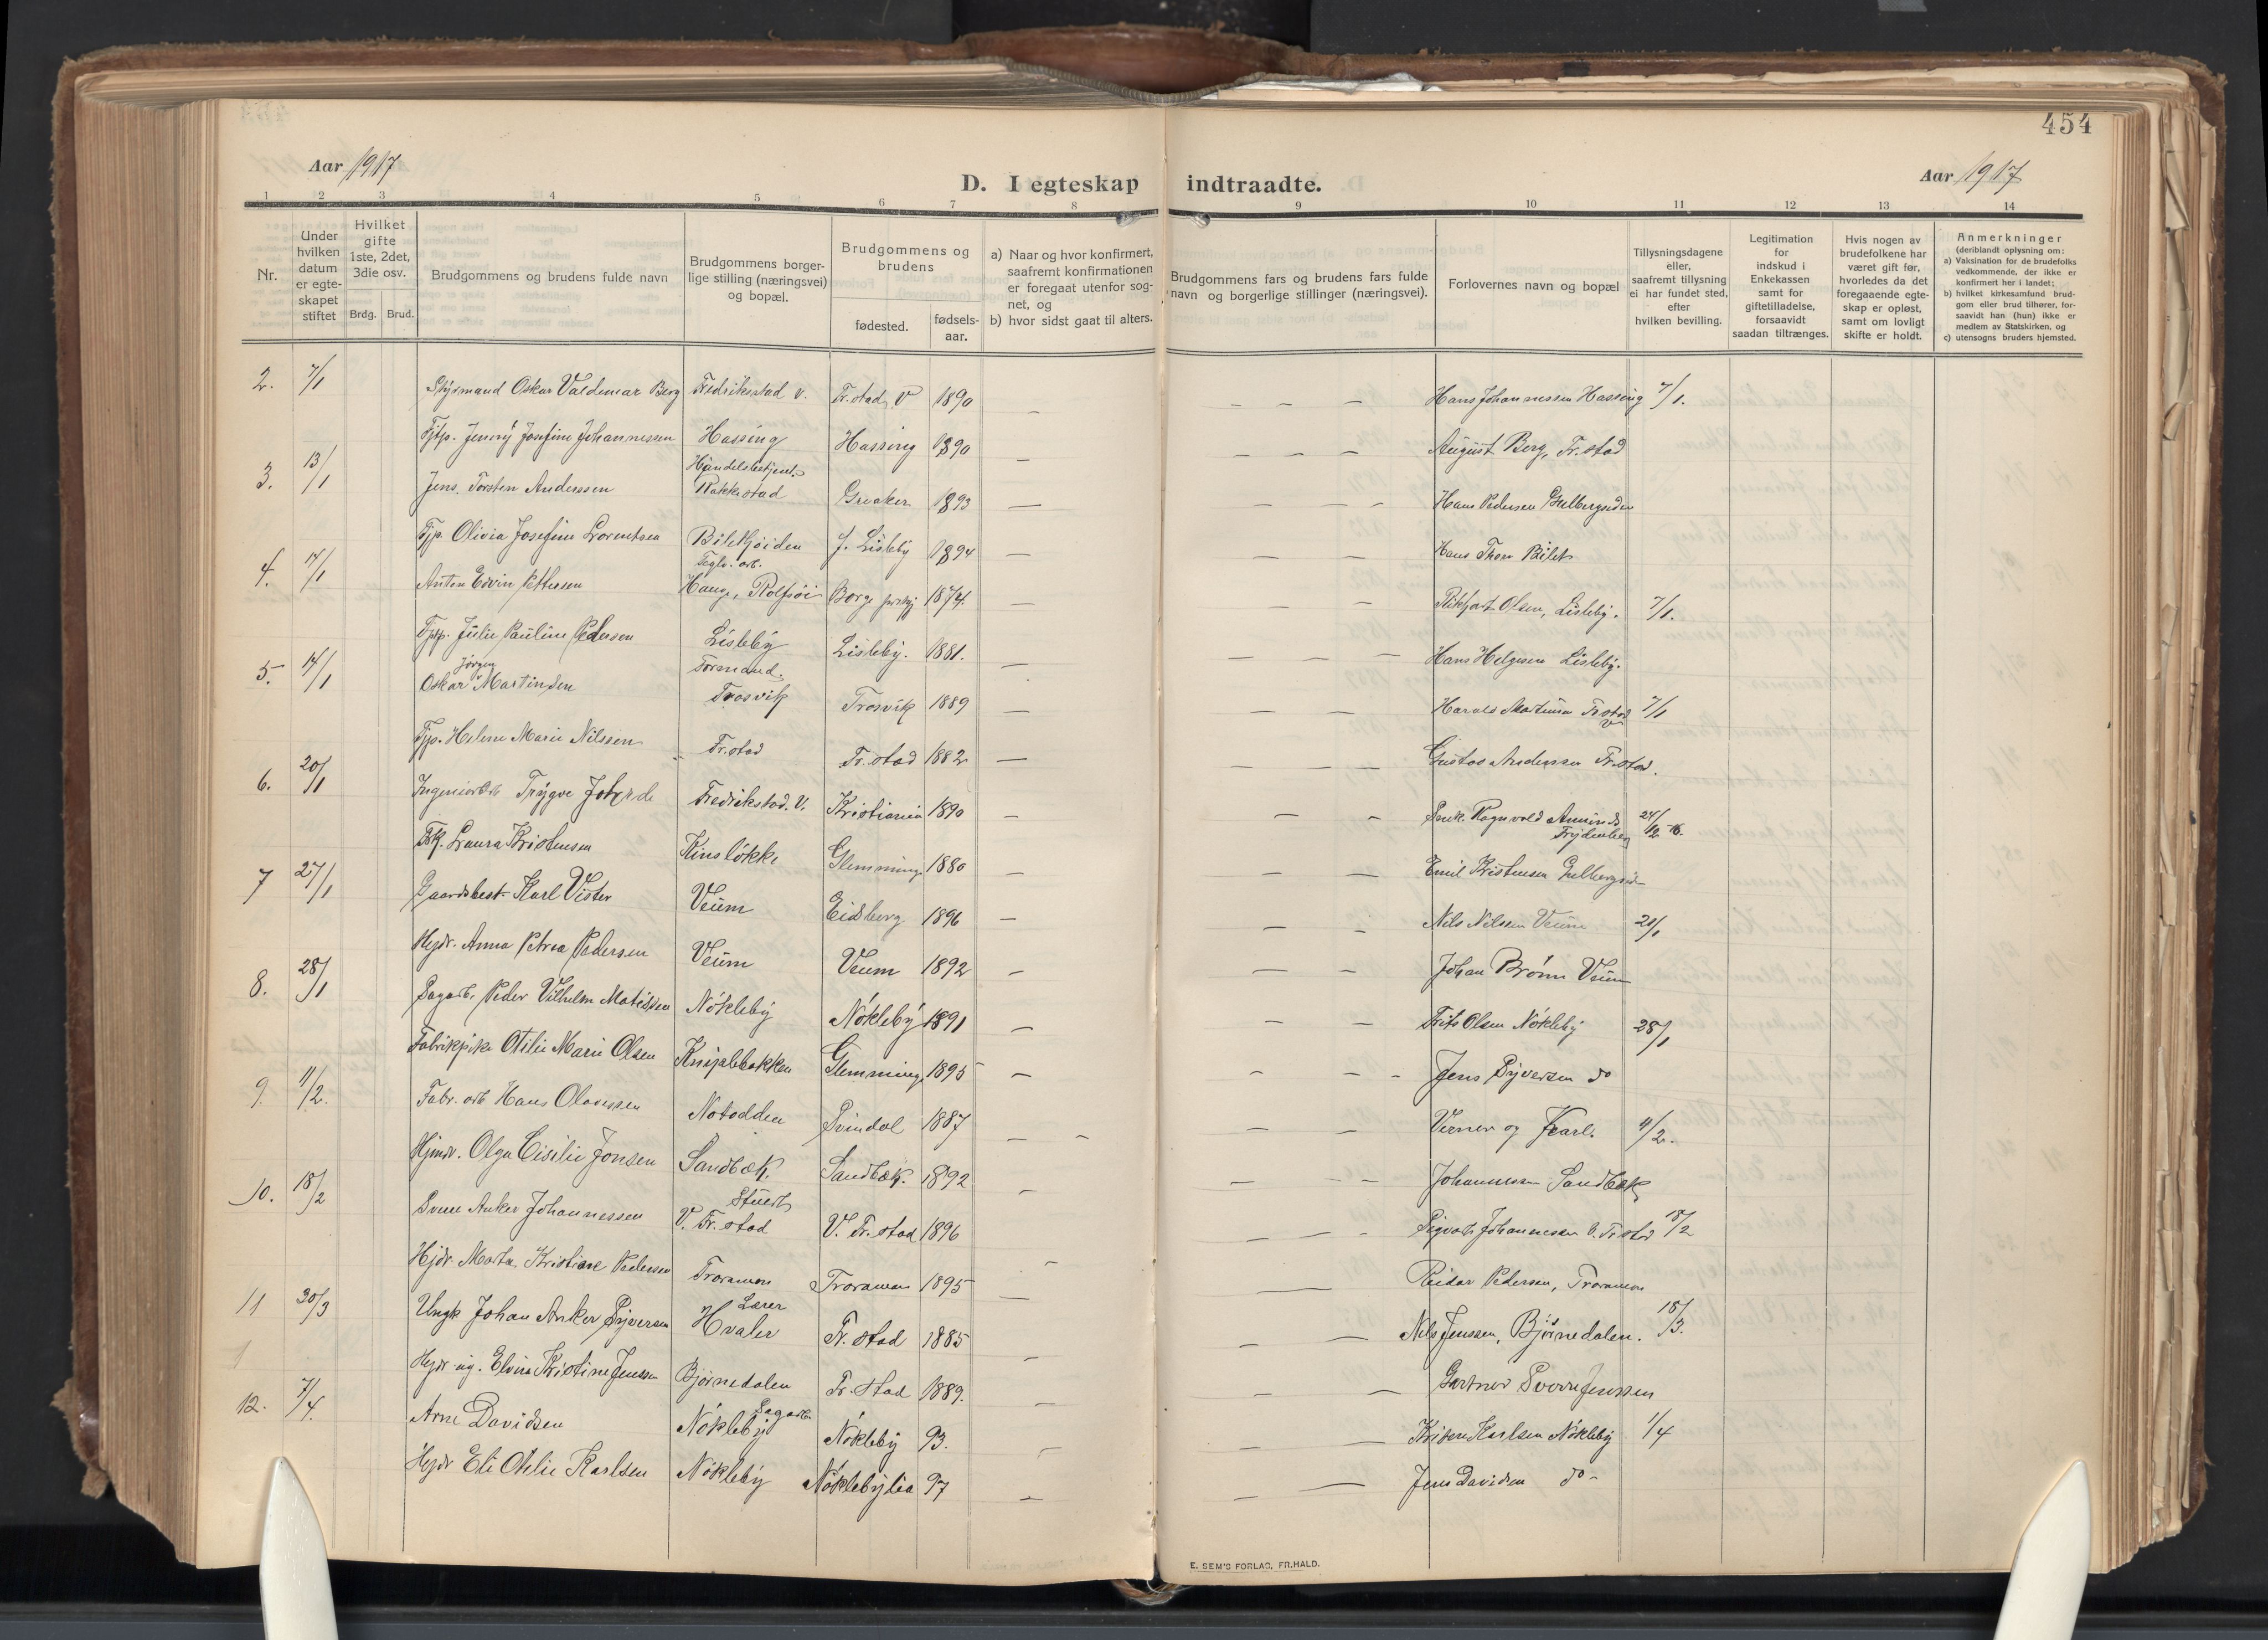 454
Aar 1917
D. I egteskap indtraadte.
Aar 1917
1 2 3 4 5 6 7 8 9 10 11 12 13 14
Nr.
Under hvilken datum er egte-skapet stiftet
Hvilket gifte 1ste, 2det, 3die osv.
Brdg. Brud.
Brudgommens og brudens fulde navn
Brudgommens borger-lige stilling (næringsvei) og bopæl.
Brudgommens og brudens
fødested.
fødsels-aar.
a) Naar og hvor konfirmert, saafremt konfirmationen er foregaat utenfor sog-net, og
b) hvor sidst gaat til alters.
Brudgommens fars og brudens fars fulde navn og borgerlige stillinger (næringsvei).
Forlovernes navn og bopæl
Tillysningsdagene eller, saafremt tillysning ei har fundet sted, efter hvilken bevilling.
Legitimation for indskud i Enkekassen samt for giftetilladelse, forsaavidt saadan tiltrænges.
Hvis nogen av brudefolkene har været gift før, hvorledes da det foregaaende egte-skap er opløst, samt om lovligt skifte er holdt.
Anmerkninger
(deriblandt oplysning om:
a) Vaksination for de brudefolks vedkommende, der ikke er konfirmert her i landet;
b) hvilket kirkesamfund brud-gom eller brud tilhører, for-saavidt han (hun) ikke er medlem av Statskirken, og
c) utensogns bruders hjemsted.
2. 7/1 Styrmand Oskar Valdemar Berg Fredriksstad v. Fr.stad, V 1890 — — — — Hans Johannessen Hassing 7/1.
Tjp. Jenny Josefine Johannessen Hassing Hassing 1890 — — — — August Berg, Fr.stad
3. 13/1 Jens Torsten Anderssen Handelsbetjent Rakkestad Greaker 1893 — — — — Hans Pedersen
Tjp. Olivia Josefine Lorentsen J. Lisleby 1894 — — — Hans Thom Bilet
4. 17/1 Anton Edvin Pettersen Teglv. arb. Hauge, Rolfsöi Borge 1874. — — — Olsen, Lisleby. 7/1.
Tjp. Julie Pauline Pedersen Lisleby Lisleby. 1881. — — — — Hans Helgesen Lisleby.
5. 14/1 Oskar Jørgen Martinsen Formand. Trosvik Trosvik 1889 — — — Harald Martinsen Fr.stad V 7/1
Tjp. Helene Marie Nilssen Fr.stad Fr.stad 1882 — — — — Gustav Andersen Fr.stad.
6. 20/1 Trygve Fredrikstad. V. Kristiania 1890 — — — Ragnvald
Laura Kristensen Kinsløkke Glemminge 1880 — — — Emil Kristensen
7 27/1 Gaardsbest. Karl Vister Veum Eidsberg 1896 — — — Nils Nilsen Veum 21/1
Hjdr. Anna Petrea Pedersen Veum Veum 1892 — — — Johan Brönn Veum
8. 28/1 Sagarb. Peder Vilhelm Matissen Nökleby Nökleby 1891 — — — Frits Olsen Nökleby 28/1
Fabrikpike Otilie Marie Olsen Kniplebakken Glemminge 1895 — — — — Jens Syversen do
9. 11/2. Fabr. arb Hans Olavssen Notodden Svindal 1887 — — — — Verner og Karl. 4/2.
Hjmdr. Olga Cisilie Jonsen Sandbæk. Sandbæk. 1892 — — — — Johannessen Sandbæk
10. 18/2 Sven Anker Johannessen Stuert V. Fr.stad V. Fr.stad 1896 — — — — Johannessen V. Fr.stad 18/2
Hjdr. Marta Kristiane Pedersen Traramen Traramen 1895 — — Reidar Pedersen, Traramen
11 30/3 Ungk Johan Anker Syversen Lærer Hvaler Fr. stad 1885 — — — Nils Jenssen, Bjørnedalen. 18/3.
Hjdr. ug. Elvina Kristine Jenssen Bjørnedalen Fr. stad 1889. — — — Gartner Sverre Jenssen
12. 7/4. Arne Davidsen Sagarb. Nökleby Nökleby 93. — — — Karlsen Nökleby 1/4
Hjdr Eli Otelie Karlsen Nökleby Nöklebylia 97 — — — Jens Davidsen do -
E. SEM'S FORLAG, FR.HALD.